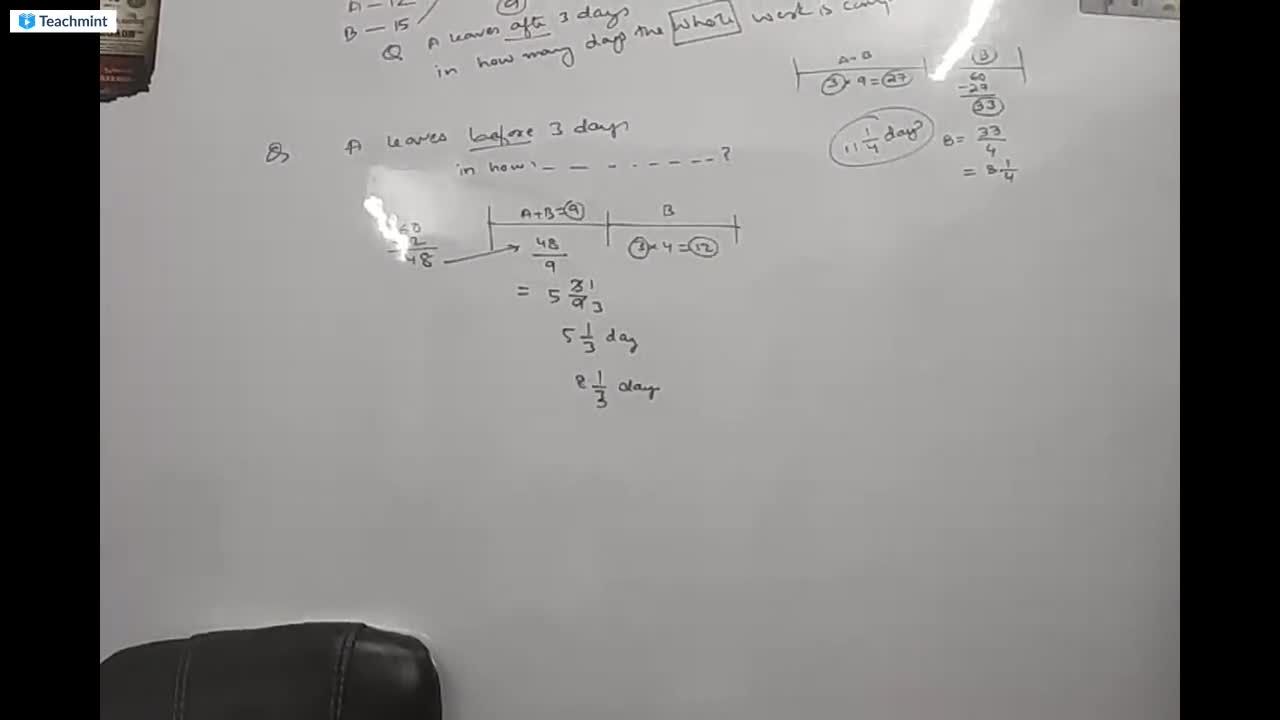 Teachmint
A - 12
B - 15
9
Q A leaves after 3 days
in how many days the whole work is
A+B B
3 × 9 = 27
60
-27
33
11 1/4 days
B = 33/4
= 8 1/4
Q A leaves before 3 days
in how - - - - - - - - ?
A+B=9 B
48
48/9
3 × 4 = 12
= 5 3/9 1/3
5 1/3 day
8 1/3 days